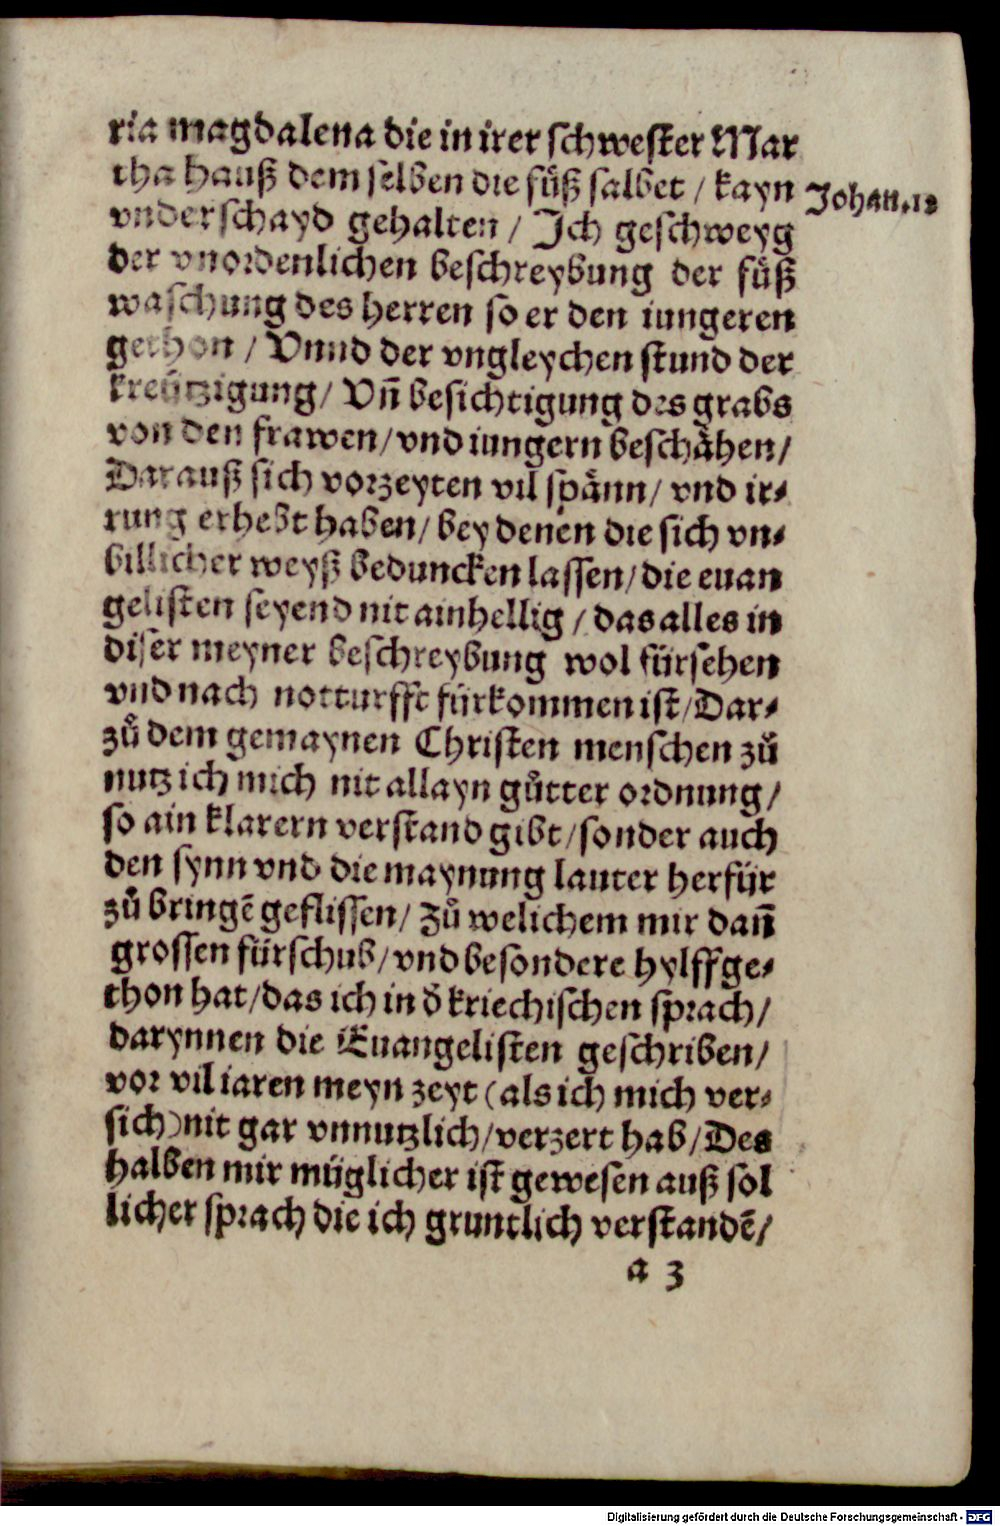 ria magdalena die in irer schwester Mar
tha hauß dem selben die fuͤß salbet / kayn
Johan.12
vnderschayd gehalten / Ich geschweyg
der vnordenlichen beschreybung der fuͤß
waschung des herren so er den iungeren
gethon / Vnnd der vngleychen stund der
kreützigung / Vñ besichtigung des grabs
von den frawen / vnd iungern beschaͤhen /
Darauß sich vorzeyten vil spaͤnn / vnd ir⸗
rung erhebt haben / bey denen die sich vn⸗
billicher weyß beduncken lassen / die euan
gelisten seyend nit ainhellig / das alles in
diser meyner beschreybung wol fürsehen
vnd nach notturfft fürkommen ist / Dar⸗
zuͦ dem gemaynen Christen menschen zuͦ
nutz ich mich nit allayn guͦtter ordnung /
so ain klarern verstand gibt / sonder auch
den synn vnd die maynung lauter herfür
zuͦ bringẽ geflissen / Zuͦ welichem mir dañ
grossen fürschub / vnd besondere hylff ge⸗
thon hat / das ich in d̕ kriechischen sprach /
darynnen die Euangelisten geschriben /
vor vil iaren meyn zeyt (als ich mich ver⸗
sich) nit gar vnnutzlich / verzert hab / Des
halben mir müglicher ist gewesen auß sol
licher sprach die ich gruntlich verstandẽ /
a 3
Digitalisierung gefördert durch die Deutsche Forschungsgemeinschaft - DFG